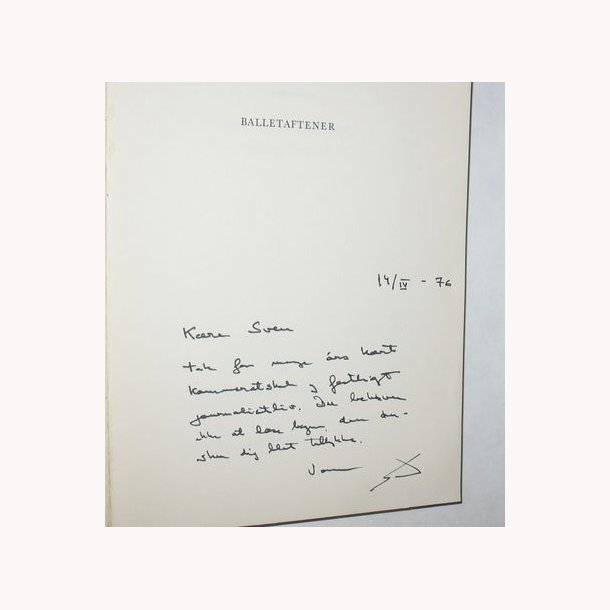 BALLETAFTENER
14/IV - 76
Kære Sven
tak for mange års kært
kammeratskab og festligt
journalistliv. Du behøver
ikke at læse bogen, den øn-
sker dig blot tillykke.